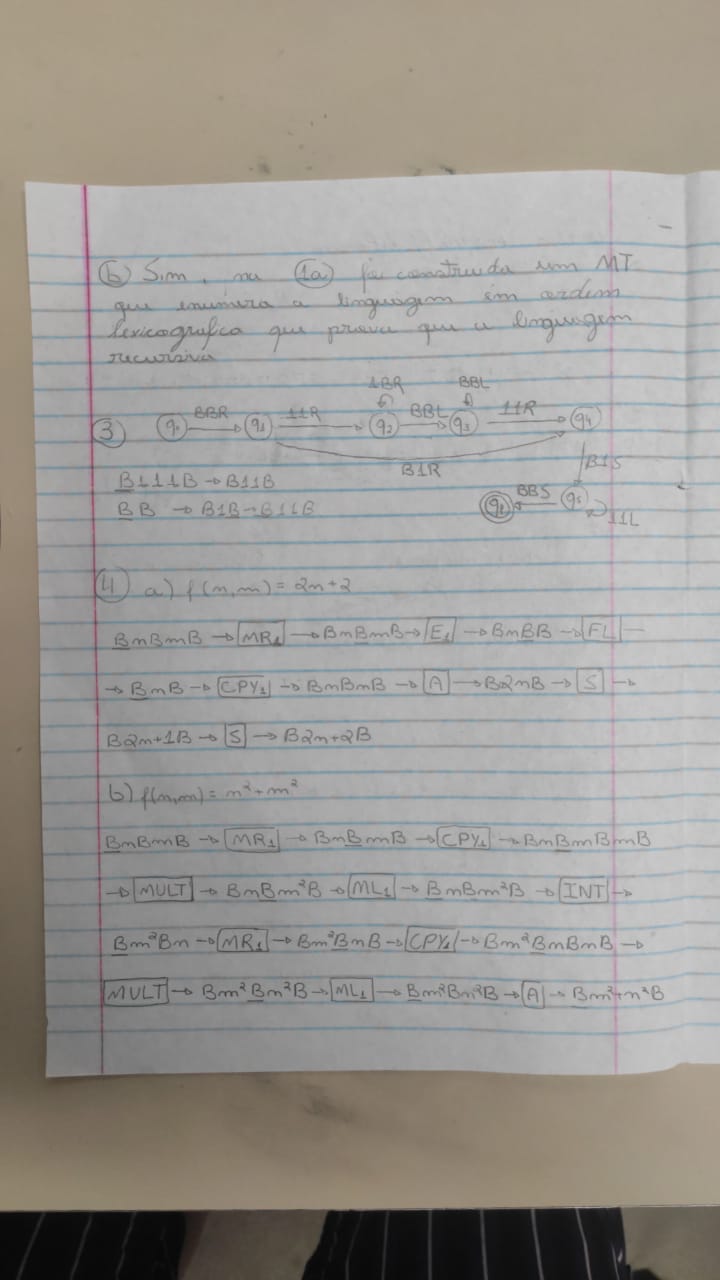 b) Sim, na 1a) foi construida um MT
que enumera a linguagem em ordem
lexicografica que prova que a linguagem
recursiva
3) q0 BBR q1 11R q2 1BR BBL q3 BBL 11R q4
B1R
B1S
B111B → B11B
q5 11L BBS
BB → B1B → B11B
4) a) f(n,m) = 2n+2
BnBmB → MR1 → BnBmB → E1 → BnBB → FL →
→ BnB → CPY1 → BnBnB → A → B2nB → S →
B2n+1B → S → B2n+2B
b) f(n,m) = n²+m²
BnBmB → MR1 → BnBmB → CPY1 → BnBmBmB
→ MULT → BnBm²B → ML1 → BnBm²B → INT →
Bm²Bn → MR1 → Bm²BnB → CPY1 → Bm²BnBnB →
MULT → Bm²Bn²B → ML1 → Bm²Bn²B → A → Bm²+n²B